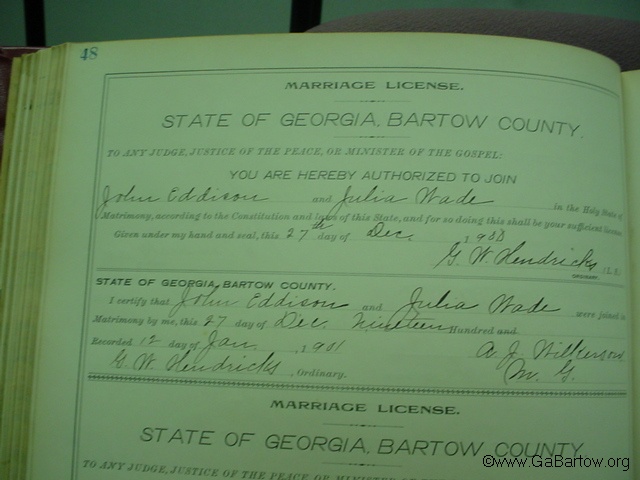 48
MARRIAGE LICENSE.
STATE OF GEORGIA, BARTOW COUNTY.
TO ANY JUDGE, JUSTICE OF THE PEACE, OR MINISTER OF THE GOSPEL:
YOU ARE HEREBY AUTHORIZED TO JOIN
John Eddison and Julia Wade in the Holy State of
Matrimony, according to the Constitution and laws of this State, and for so doing this shall be your sufficient license.
Given under my hand and seal, this 27th day of Dec. 190
G. W. Hendricks (L. S.)
ORDINARY.
STATE OF GEORGIA, BARTOW COUNTY.
I certify that John Eddison and Julia Wade were joined in
Matrimony by me, this 27 day of Dec. Nineteen Hundred and
Recorded 12 day of Jan. , 1901 A. J. Wilkerson
G. W. Hendricks , Ordinary. M. G.
MARRIAGE LICENSE.
STATE OF GEORGIA, BARTOW COUNTY
TO ANY JUDGE, JUSTICE OF THE PEACE, OR MINISTER OF
©www.GaBartow.org